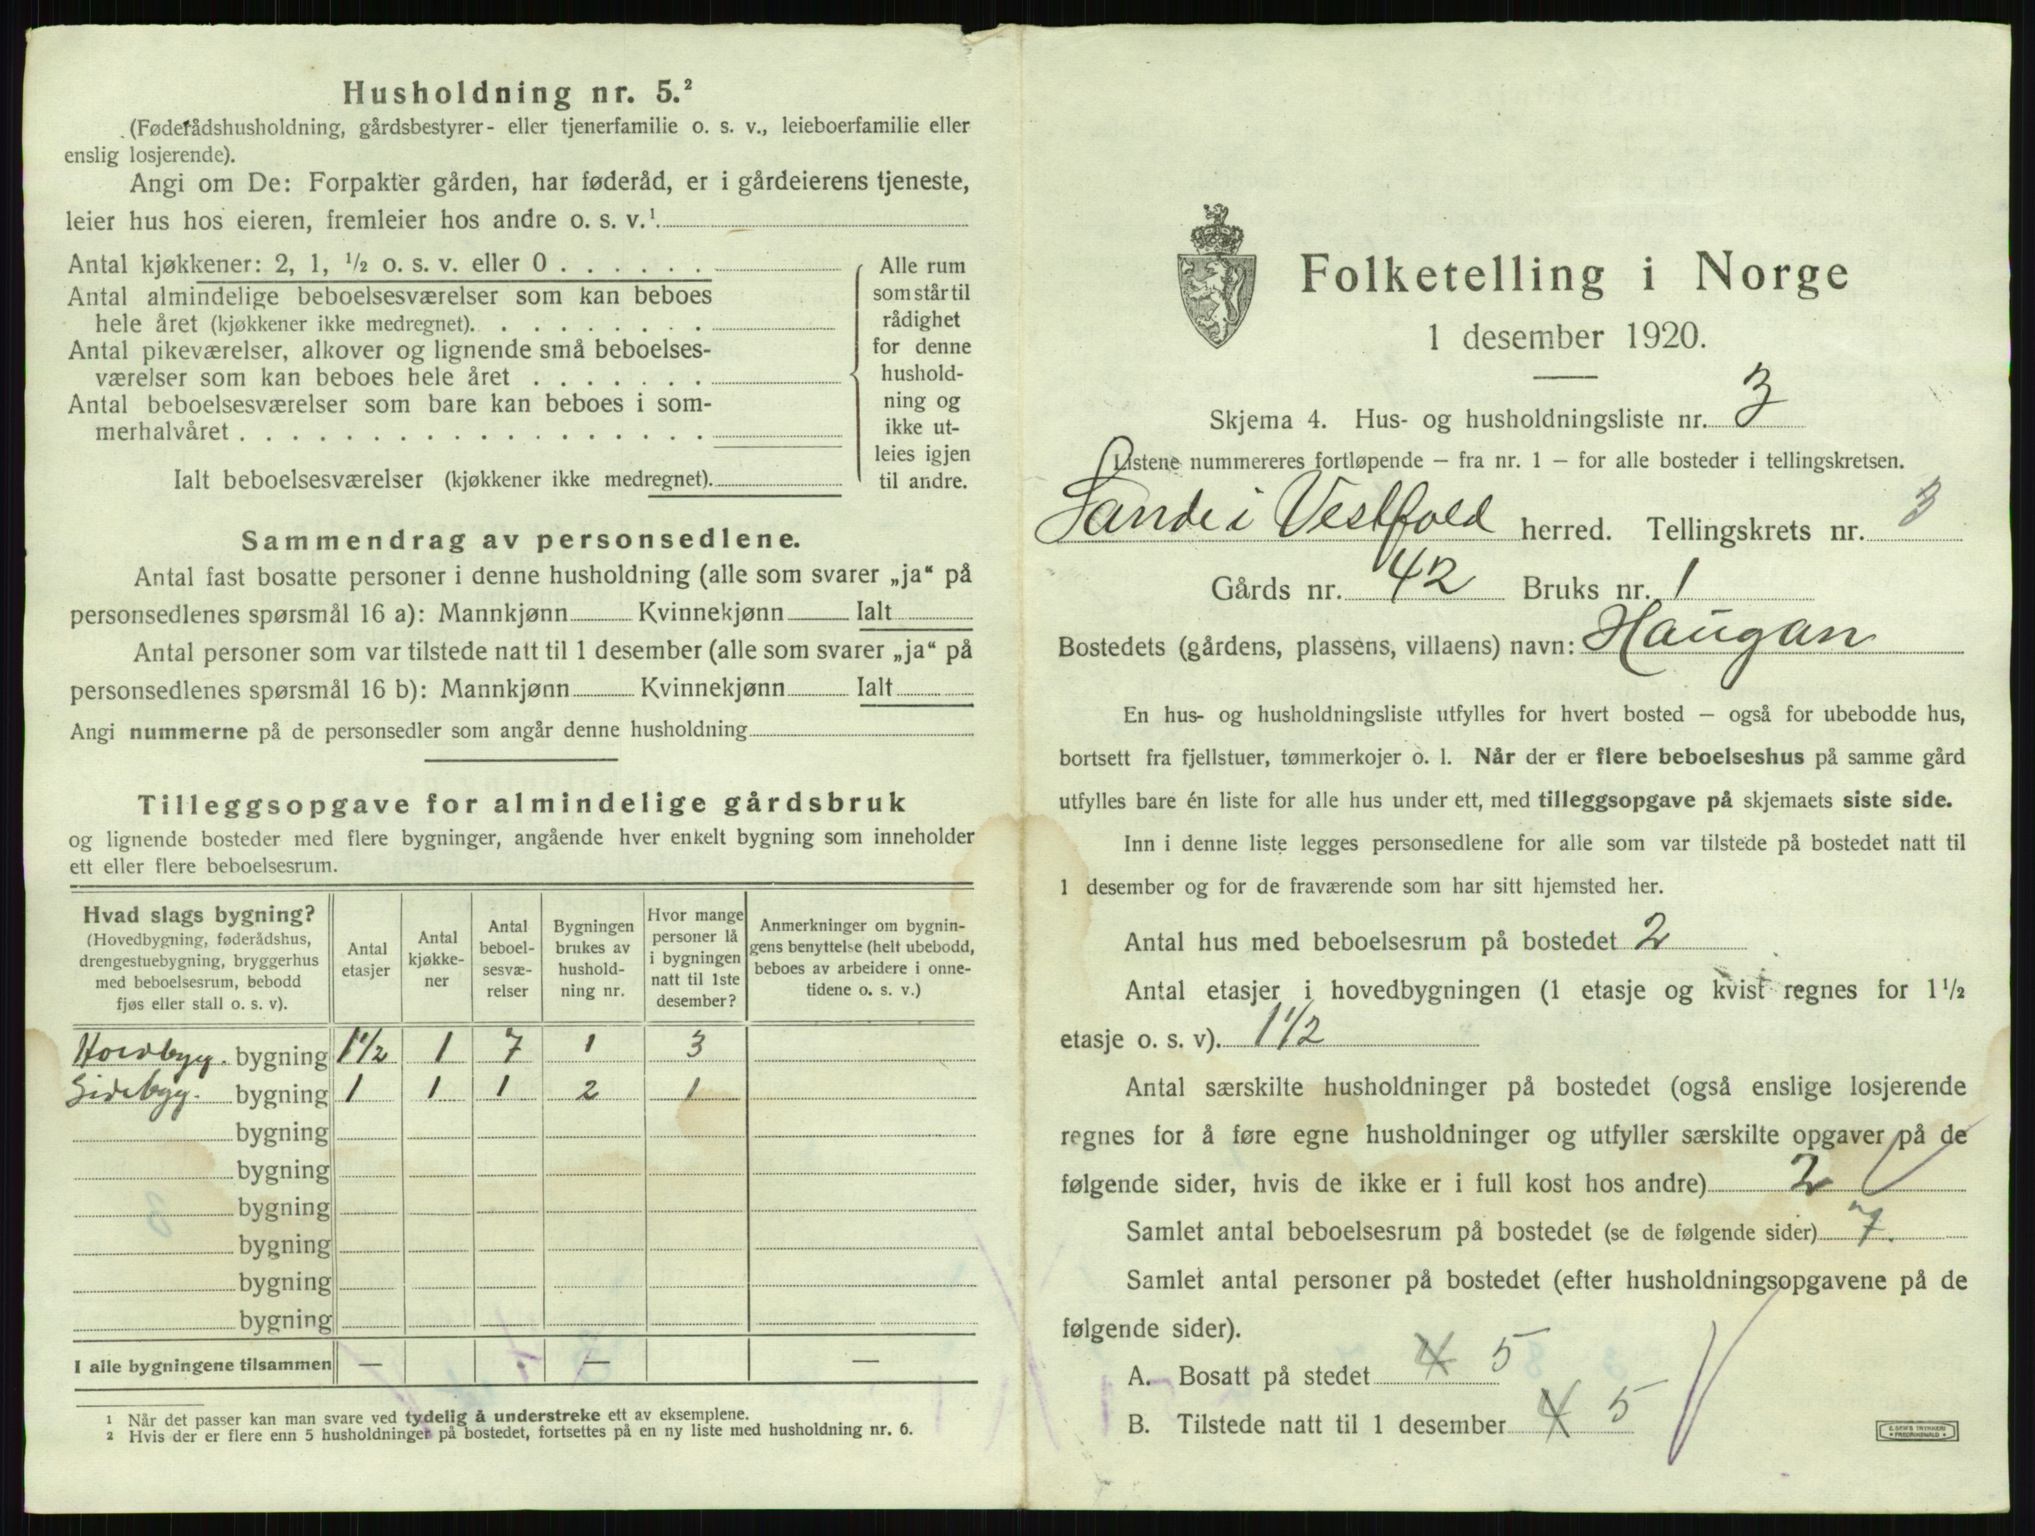 Husholdning nr. 5.²
(Føderådshusholdning, gårdsbestyrer- eller tjenerfamilie o. s. v., leieboerfamilie eller
enslig losjerende).
Angi om De: Forpakter gården, har føderåd, er i gårdeierens tjeneste,
leier hus hos eieren, fremleier hos andre o. s. v.¹
Antal kjøkkener: 2, 1, ½ o. s. v. eller 0 . . . . . .
Antal almindelige beboelsesværelser som kan beboes
hele året (kjøkkener ikke medregnet). . . . . . . . .
Antal pikeværelser, alkover og lignende små beboelses-
værelser som kan beboes hele året . . . . . . .
Antal beboelsesværelser som bare kan beboes i som-
merhalvåret . . . . . . . . . . . . . . . . . .
Ialt beboelsesværelser (kjøkkener ikke medregnet).
Alle rum
som står til
rådighet
for denne
hushold-
ning og
ikke ut-
leies igjen
til andre.
Sammendrag av personsedlene.
Antal fast bosatte personer i denne husholdning (alle som svarer „ja“ på
personsedlenes spørsmål 16 a): Mannkjønn Kvinnekjønn Ialt
Antal personer som var tilstede natt til 1 desember (alle som svarer „ja“ på
personsedlenes spørsmål 16 b): Mannkjønn Kvinnekjønn Ialt
Angi nummerne på de personsedler som angår denne husholdning
Tilleggsopgave for almindelige gårdsbruk
og lignende bosteder med flere bygninger, angående hver enkelt bygning som inneholder
ett eller flere beboelsesrum.
Hvad slags bygning?
(Hovedbygning, føderådshus,
drengestuebygning, bryggerhus
med beboelsesrum, bebodd
fjøs eller stall o. s. v).
Antal
etasjer
Antal
kjøkke-
ner
Antal
beboel-
sesvæ-
relser
Bygningen
brukes av
hushold-
ning nr.
Hvor mange
personer lå
i bygningen
natt til 1ste
desember?
Anmerkninger om bygnin-
gens benyttelse (helt ubebodd,
beboes av arbeidere i onne-
tidene o. s. v.)
Hovdbyg. bygning 1½ 1 7 1 3
Sidebyg. bygning 1 1 1 2 1
bygning
bygning
bygning
bygning
bygning
bygning
I alle bygningene tilsammen — — —
¹ Når det passer kan man svare ved tydelig å understreke ett av eksemplene.
² Hvis der er flere enn 5 husholdninger på bostedet, fortsettes på en ny liste med husholdning nr. 6.
Folketelling i Norge
1 desember 1920.
Skjema 4. Hus- og husholdningsliste nr. 3
Listene nummereres fortløpende — fra nr. 1 — for alle bosteder i tellingskretsen.
Sande i Vestfold herred. Tellingskrets nr. 3
Gårds nr. 42 Bruks nr. 1
Bostedets (gårdens, plassens, villaens) navn: Haugan
En hus- og husholdningsliste utfylles for hvert bosted — også for ubebodde hus,
bortsett fra fjellstuer, tømmerkojer o. l. Når der er flere beboelseshus på samme gård
utfylles bare én liste for alle hus under ett, med tilleggsopgave på skjemaets siste side.
Inn i denne liste legges personsedlene for alle som var tilstede på bostedet natt til
1 desember og for de fraværende som har sitt hjemsted her.
Antal hus med beboelsesrum på bostedet 2
Antal etasjer i hovedbygningen (1 etasje og kvist regnes for 1½
etasje o. s. v). 1½
Antal særskilte husholdninger på bostedet (også enslige losjerende
regnes for å føre egne husholdninger og utfyller særskilte opgaver på de
følgende sider, hvis de ikke er i full kost hos andre) 2
Samlet antal beboelsesrum på bostedet (se de følgende sider) 7.
Samlet antal personer på bostedet (efter husholdningsopgavene på de
følgende sider).
A. Bosatt på stedet 4 5
B. Tilstede natt til 1 desember 4 5